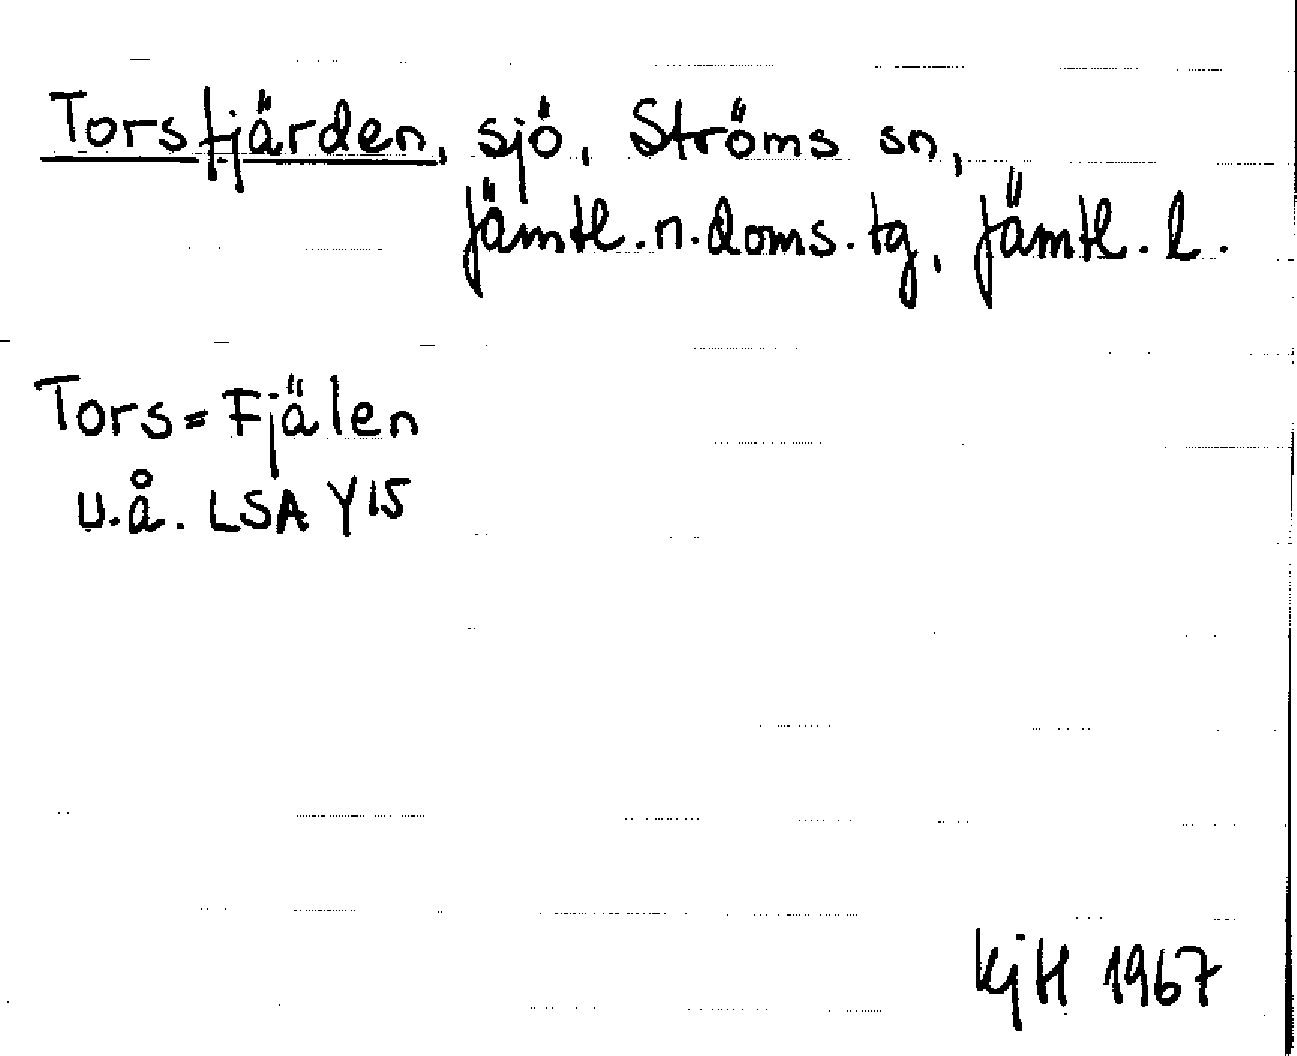 Torsfjärden, sjö, Ströms sn,
Jämtl. n. doms. tg, Jämtl. l.
Tors=Fjälen
u.å. LSA Y15
KjH 1967